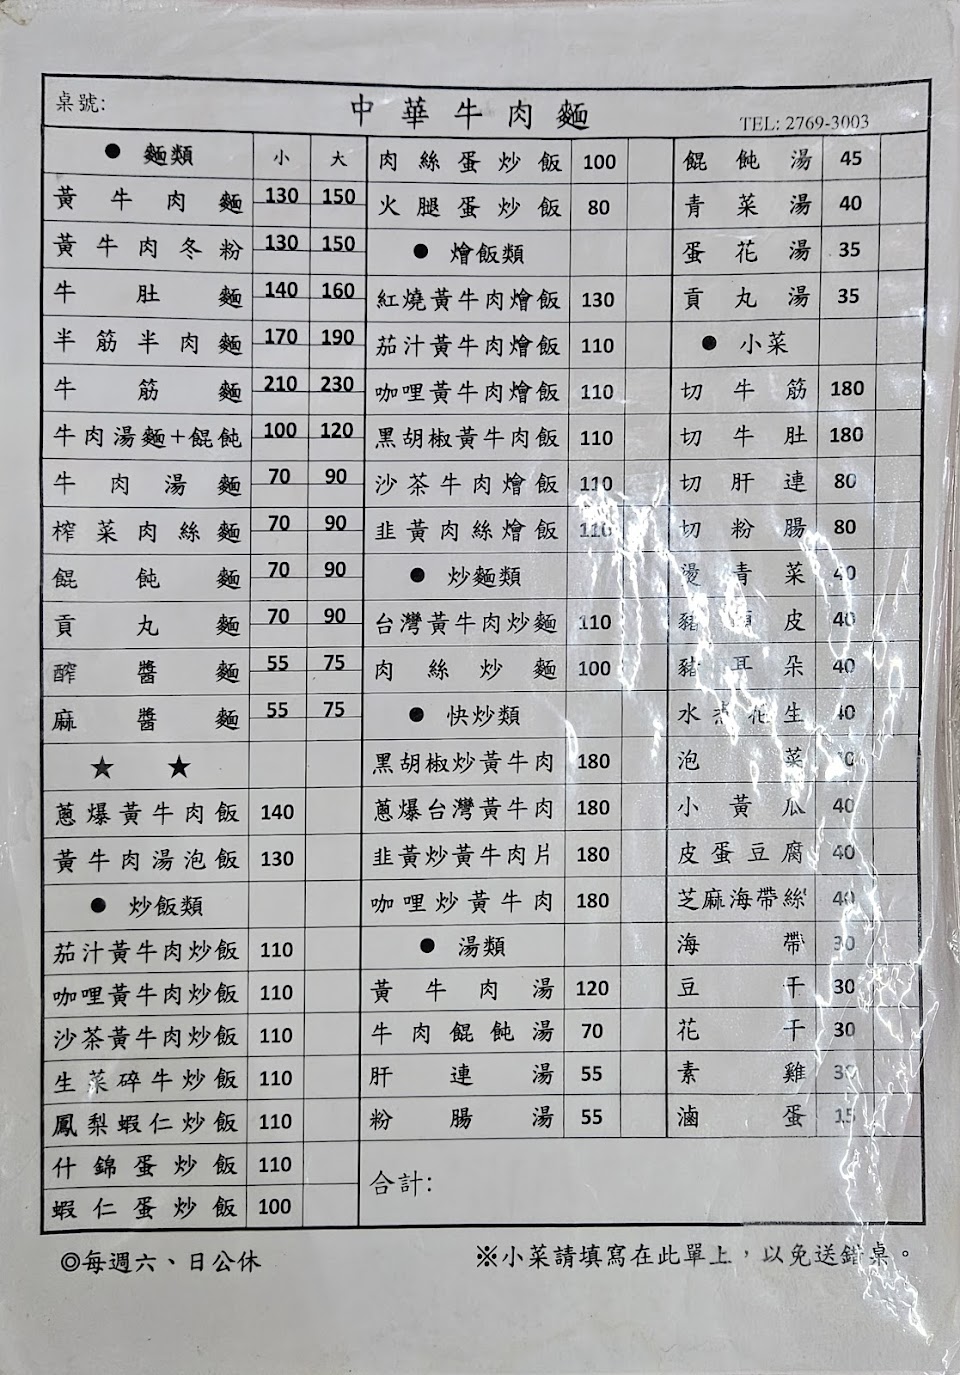 桌號:
中華牛肉麵
TEL: 2769-3003
● 麵類 小 大
黃牛肉麵 130 150
黃牛肉冬粉 130 150
牛肚麵 140 160
半筋半肉麵 170 190
牛筋麵 210 230
牛肉湯麵+餛飩 100 120
牛肉湯麵 70 90
榨菜肉絲麵 70 90
餛飩麵 70 90
貢丸麵 70 90
醡醬麵 55 75
麻醬麵 55 75
★ ★
蔥爆黃牛肉飯 140
黃牛肉湯泡飯 130
● 炒飯類
茄汁黃牛肉炒飯 110
咖哩黃牛肉炒飯 110
沙茶黃牛肉炒飯 110
生菜碎牛炒飯 110
鳳梨蝦仁炒飯 110
什錦蛋炒飯 110
蝦仁蛋炒飯 100
肉絲蛋炒飯 100
火腿蛋炒飯 80
● 燴飯類
紅燒黃牛肉燴飯 130
茄汁黃牛肉燴飯 110
咖哩黃牛肉燴飯 110
黑胡椒黃牛肉飯 110
沙茶牛肉燴飯 110
韭黃肉絲燴飯 110
● 炒麵類
台灣黃牛肉炒麵 110
肉絲炒麵 100
● 快炒類
黑胡椒炒黃牛肉 180
蔥爆台灣黃牛肉 180
韭黃炒黃牛肉片 180
咖哩炒黃牛肉 180
● 湯類
黃牛肉湯 120
牛肉餛飩湯 70
肝連湯 55
粉腸湯 55
餛飩湯 45
青菜湯 40
蛋花湯 35
貢丸湯 35
● 小菜
切牛筋 180
切牛肚 180
切肝連 80
切粉腸 80
燙青菜 40
豬頭皮 40
豬耳朵 40
水煮花生 40
泡菜
小黃瓜 40
皮蛋豆腐 40
芝麻海帶絲 40
海帶 30
豆干 30
花干 30
素雞 30
滷蛋 15
合計:
◎每週六、日公休
※小菜請填寫在此單上，以免送錯桌。